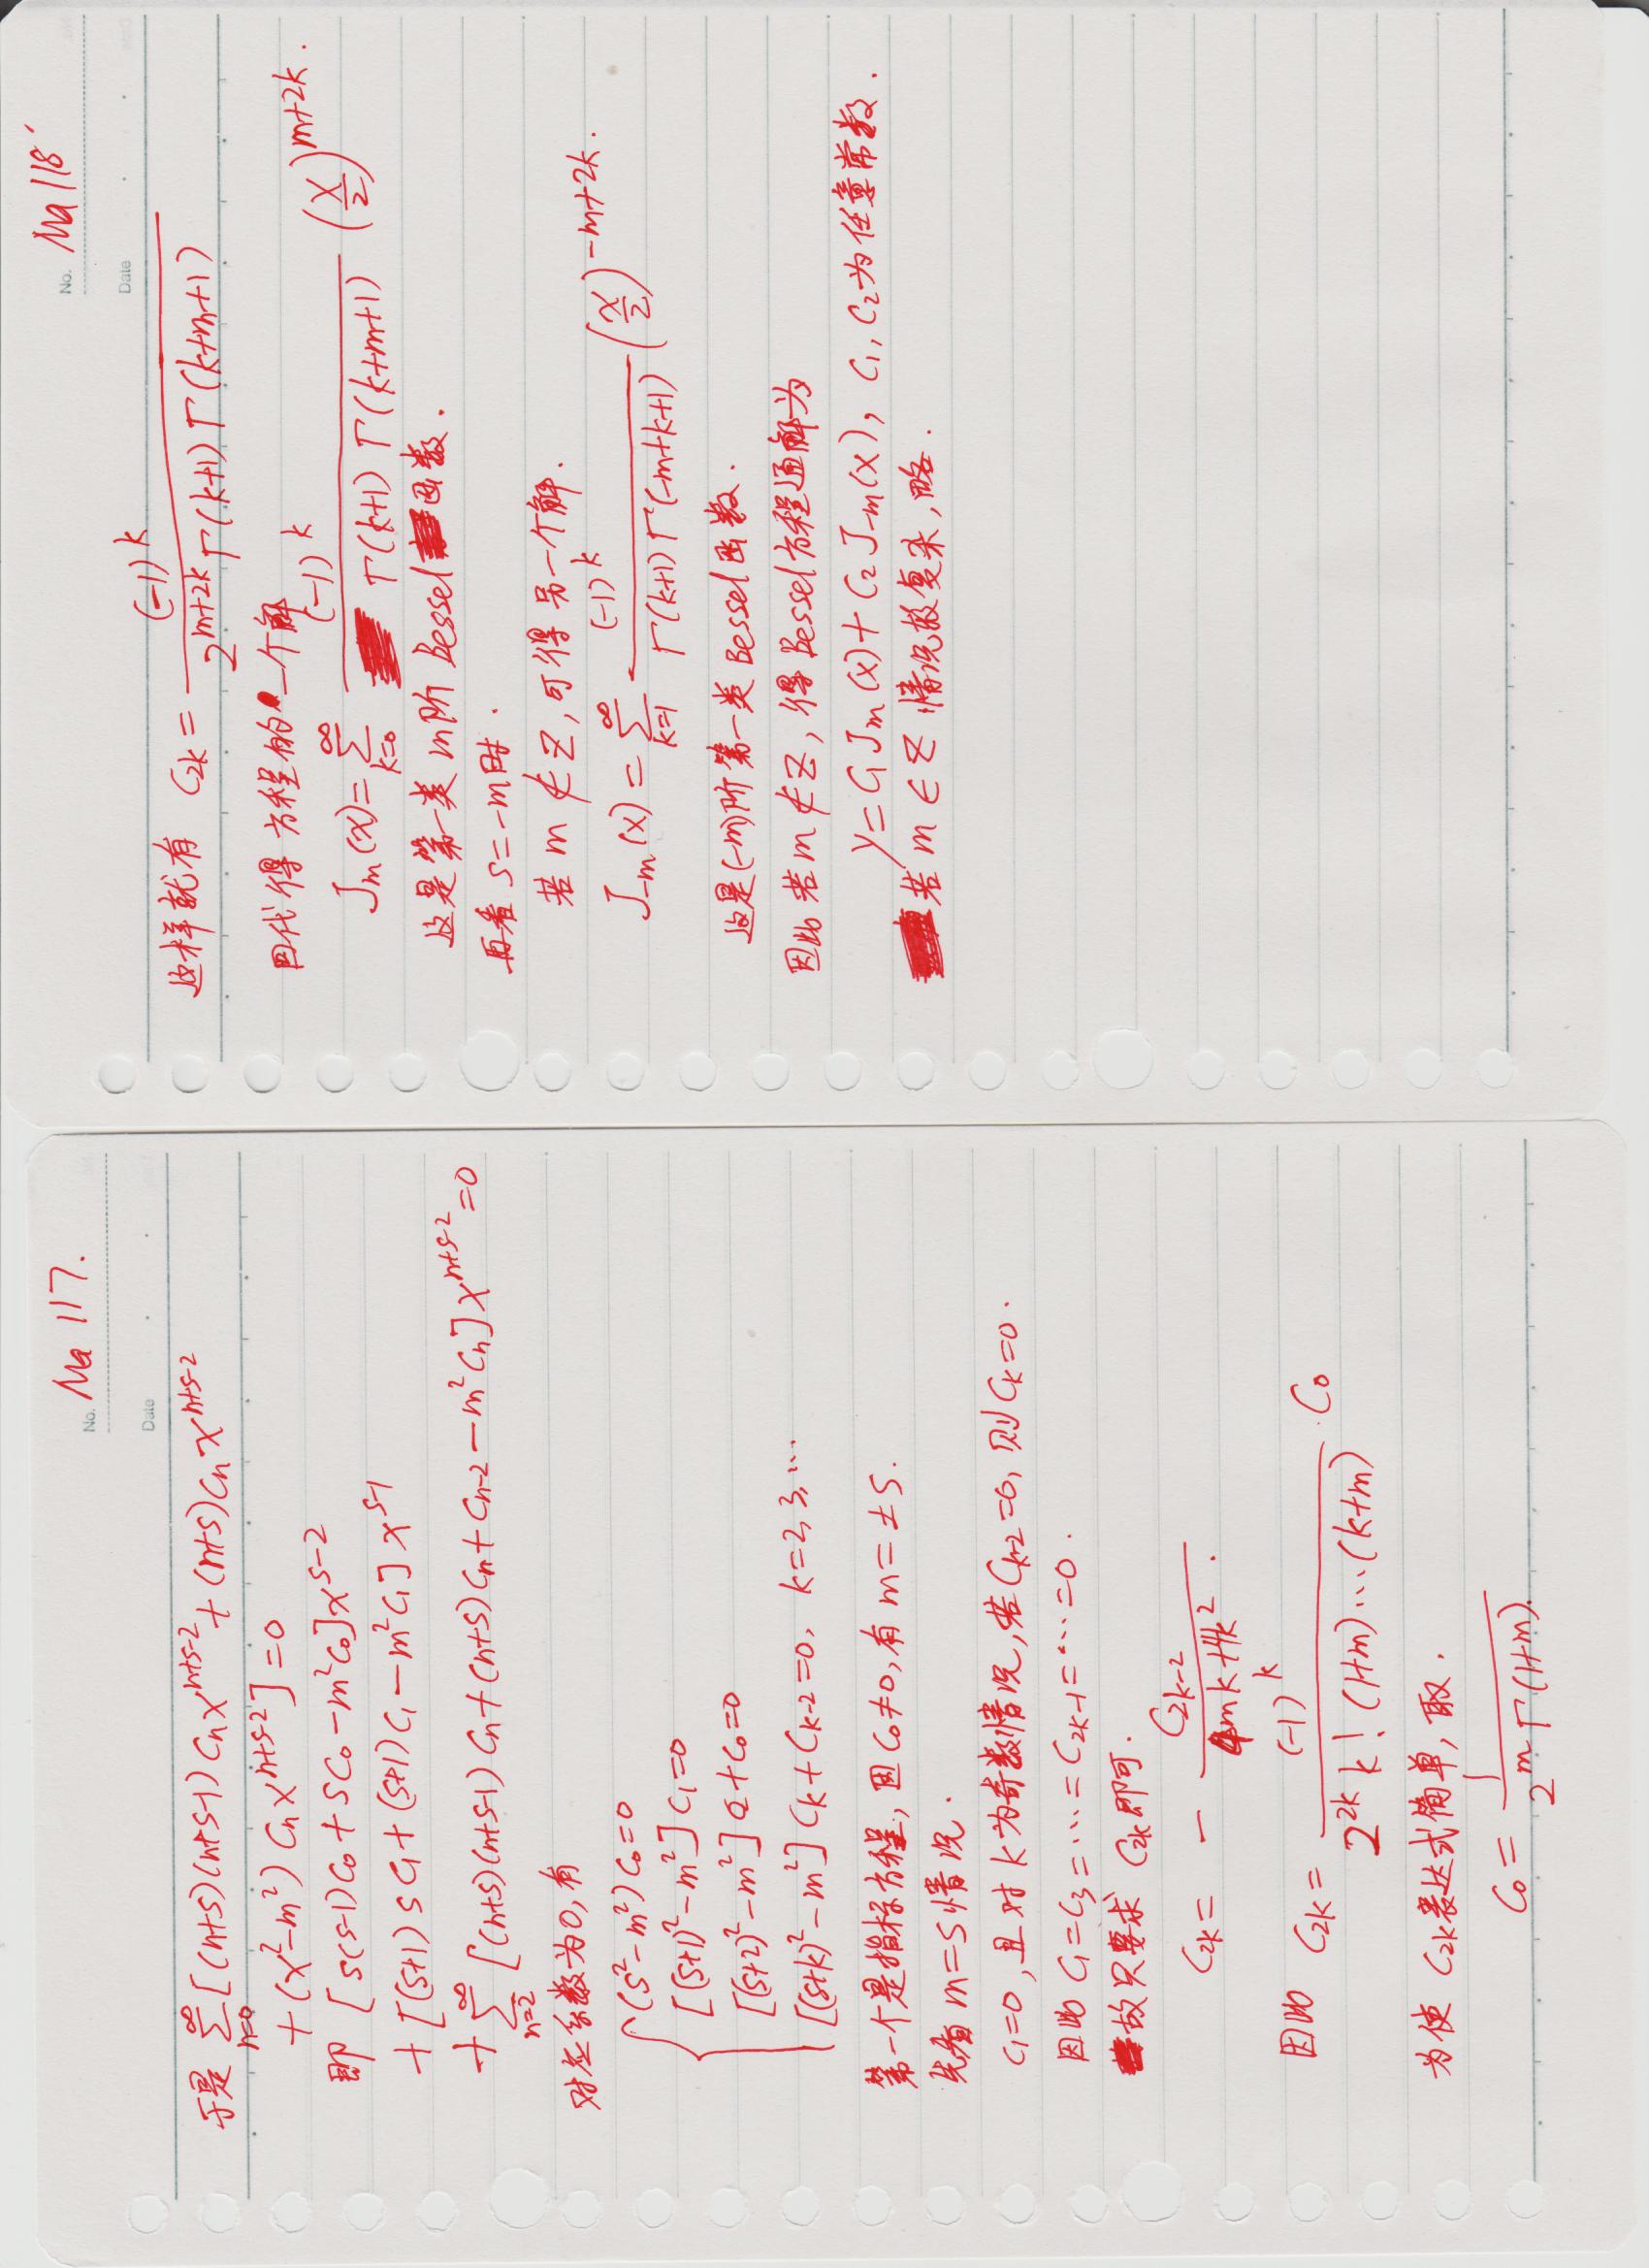 No. Ma 117.
Date
于是 $\sum_{n=0}^{\infty} [(n+s)(n+s-1) C_n x^{n+s-2} + (n+s) C_n x^{n+s-2}$
$+ (x^2-m^2) C_n x^{n+s-2}] = 0$
即 $[s(s-1)C_0 + sC_0 - m^2 C_0] x^{s-2}$
$+ [(s+1) s C_1 + (s+1) C_1 - m^2 C_1] x^{s-1}$
$+ \sum_{n=2}^{\infty} [(n+s)(n+s-1) C_n + (n+s) C_n + C_{n-2} - m^2 C_n] x^{n+s-2} = 0$
对应系数为0,有
$(s^2-m^2) C_0 = 0$
$[(s+1)^2 - m^2] C_1 = 0$
$[(s+2)^2 - m^2] C_2 + C_0 = 0$
$[(s+k)^2 - m^2] C_k + C_{k-2} = 0, k=2,3,\cdots$
第一个是指标方程,因 $C_0 \neq 0$,有 $m = \pm s$.
先看 $m=s$ 情况.
$C_1=0$,且对 k 为奇数情况,若 $C_{k-2}=0$,则 $C_k=0$.
因此 $C_1 = C_3 = \cdots = C_{2k-1} = \cdots = 0$.
故只要求 $C_{2k}$ 即可.
$C_{2k} = - \frac{C_{2k-2}}{4mk+4k^2}$.
因此 $C_{2k} = \frac{(-1)^k}{2^{2k} k! (1+m)\cdots(k+m)} \cdot C_0$
为使 $C_{2k}$ 表达式简单,取.
$C_0 = \frac{1}{2^m \Gamma(1+m)}$.
No. Ma 118
Date
这样就有 $C_{2k} = \frac{(-1)^k}{2^{m+2k} \Gamma(k+1) \Gamma(k+m+1)}$
回代得方程的一个解
$J_m(x) = \sum_{k=0}^{\infty} \frac{(-1)^k}{\Gamma(k+1) \Gamma(k+m+1)} (\frac{x}{2})^{m+2k}$.
这是第一类 m 阶 Bessel 函数.
再看 $s=-m$ 时.
若 $m \notin Z$,可得另一个解.
$J_{-m}(x) = \sum_{k=1}^{\infty} \frac{(-1)^k}{\Gamma(k+1) \Gamma(-m+k+1)} (\frac{x}{2})^{-m+2k}$.
这是(-m)阶第一类 Bessel 函数.
因此若 $m \notin Z$,得 Bessel 方程通解为
$y = C_1 J_m(x) + C_2 J_{-m}(x)$, $C_1, C_2$ 为任意常数.
若 $m \in Z$ 情况较复杂,略.